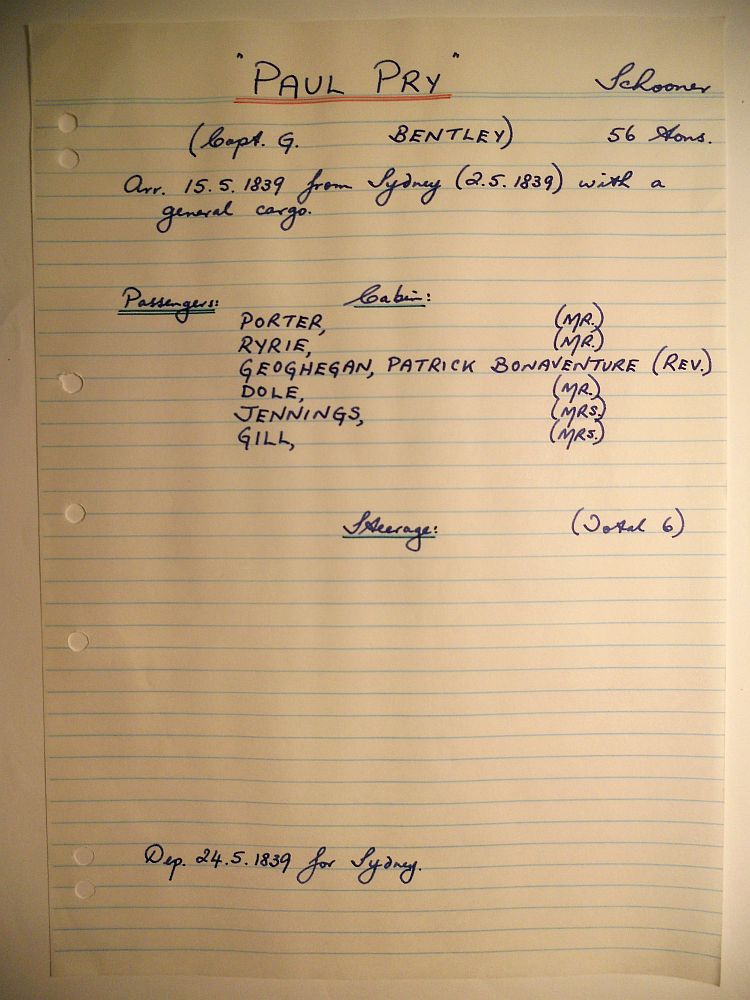 "PAUL PRY" Schooner
(Capt. G. BENTLEY) 56 tons.
Arr. 15.5.1839 from Sydney (2.5.1839) with a
general cargo.
Passengers: Cabin:
PORTER, (MR.)
RYRIE, (MR.)
GEOGHEGAN, PATRICK BONAVENTURE (REV.)
DOLE, (MR.)
JENNINGS, (MRS.)
GILL, (MRS.)
Steerage: (Total 6)
Dep. 24.5.1839 for Sydney.